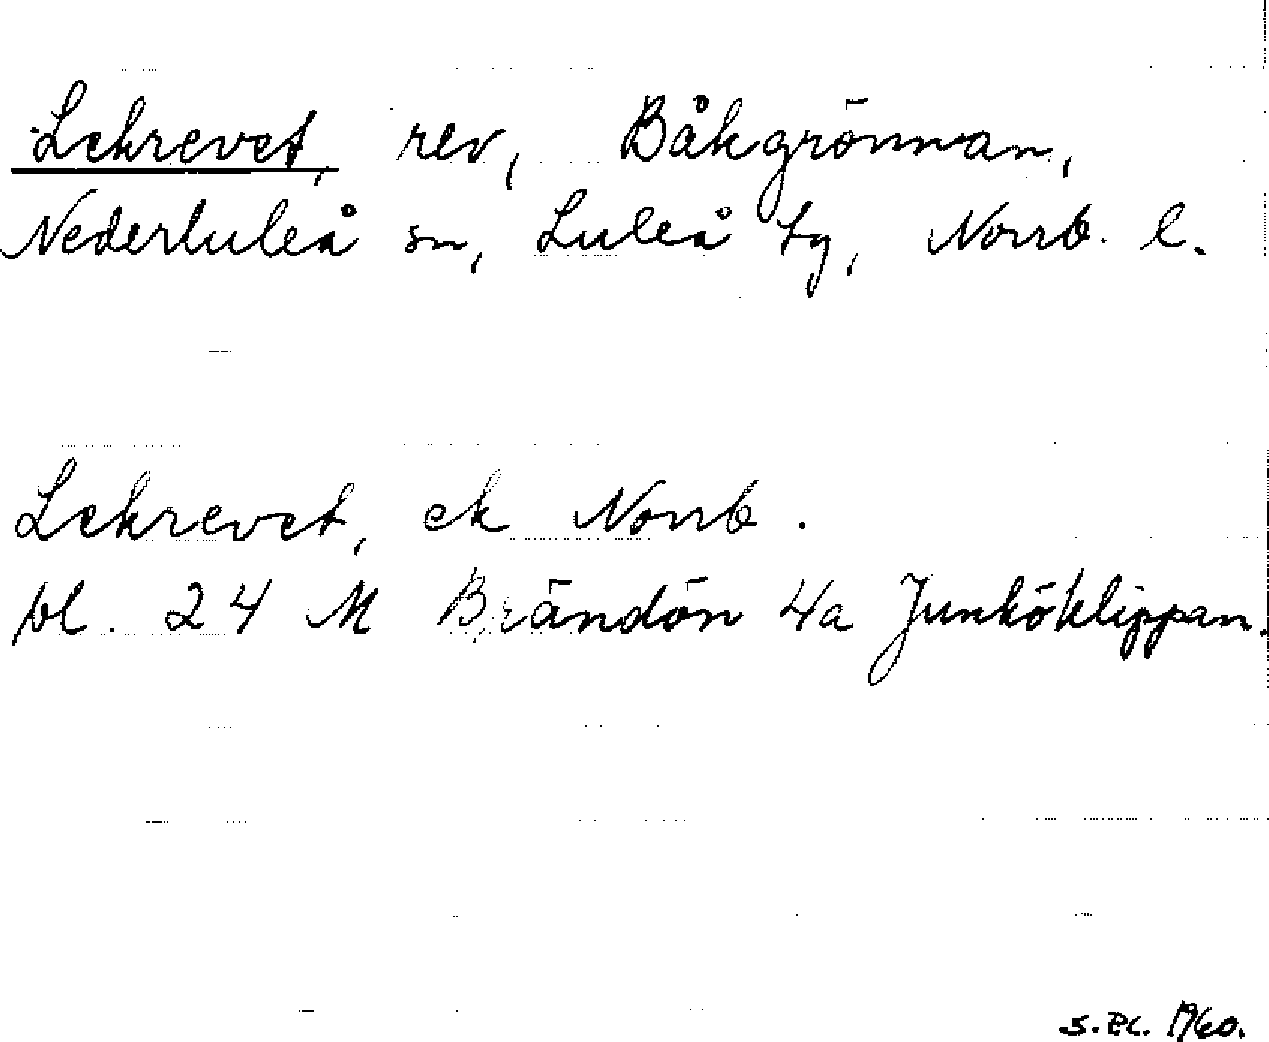 Lekrevet, rev, Båkgrönnan,
Nederluleå sn, Luleå tg, Norrb. l.
Lekrevet, ek Norrb.
bl. 24 M Brändön 4a Junköklippan.
1960.